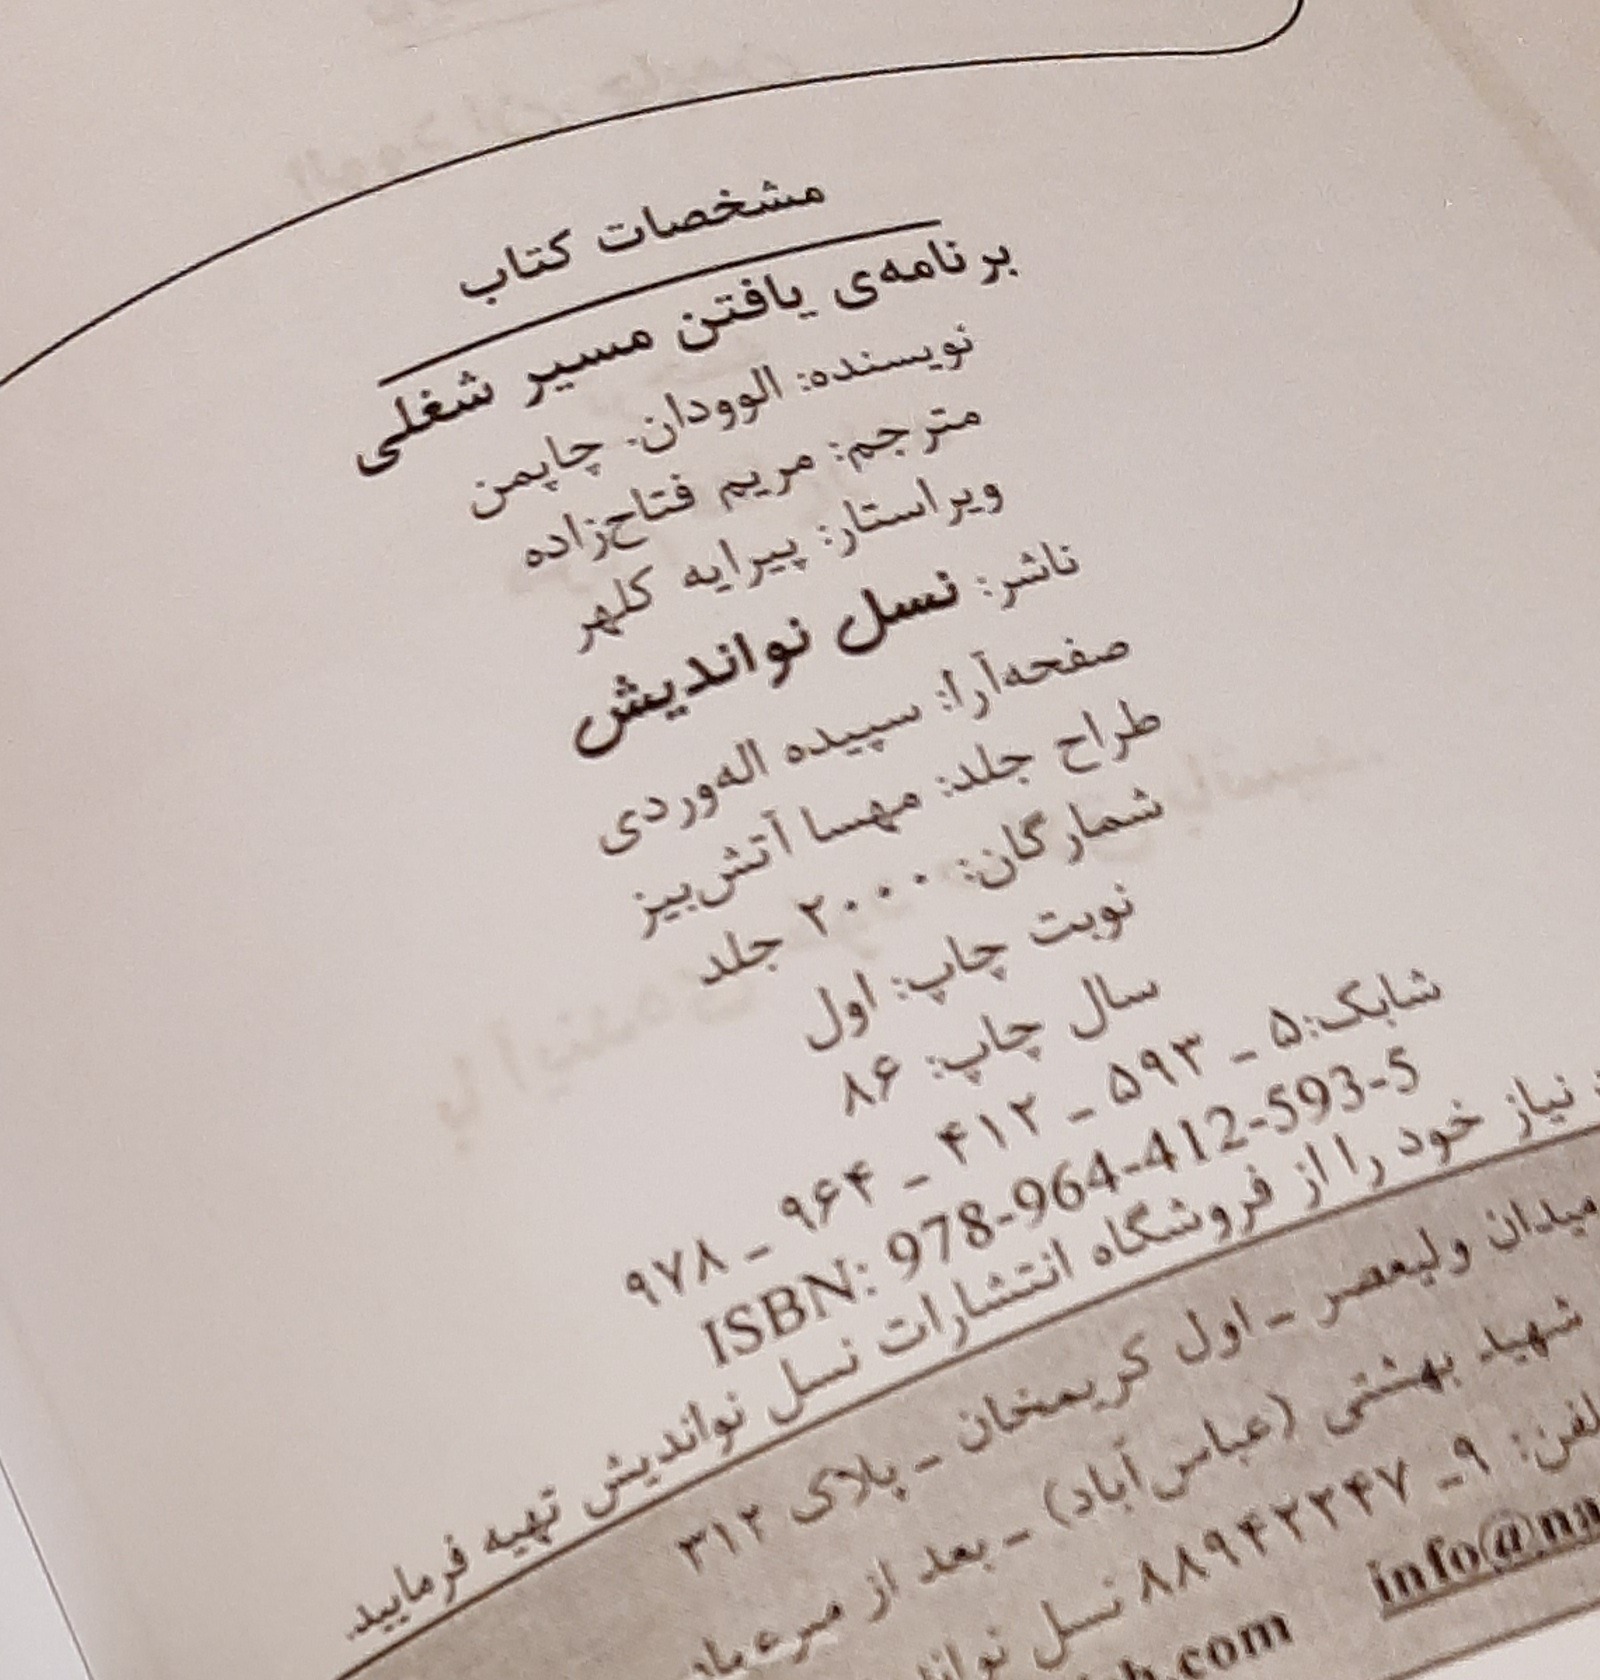 مشخصات کتاب
برنامه‌ی یافتن مسیر شغلی
نویسنده: الوودان. چاپمن
مترجم: مریم فتاح‌زاده
ویراستار: پیرایه کلهر
ناشر: نسل نواندیش
صفحه‌آرا: سپیده اله‌وردی
طراح جلد: مهسا آتش‌بیز
شمارگان: ۲۰۰۰ جلد
نوبت چاپ: اول
سال چاپ: ۸۶
شابک:۵ - ۵۹۳ - ۴۱۲ - ۹۶۴ - ۹۷۸
ISBN: 978-964-412-593-5
نیاز خود را از فروشگاه انتشارات نسل نواندیش تهیه فرمایید.
میدان ولیعصر - اول کریمخان - پلاک ۳۱۲
شهید بهشتی (عباس‌آباد) - بعد از
۹- ۸۸۹۴۲۲۴۷ نسل
info@na
.com